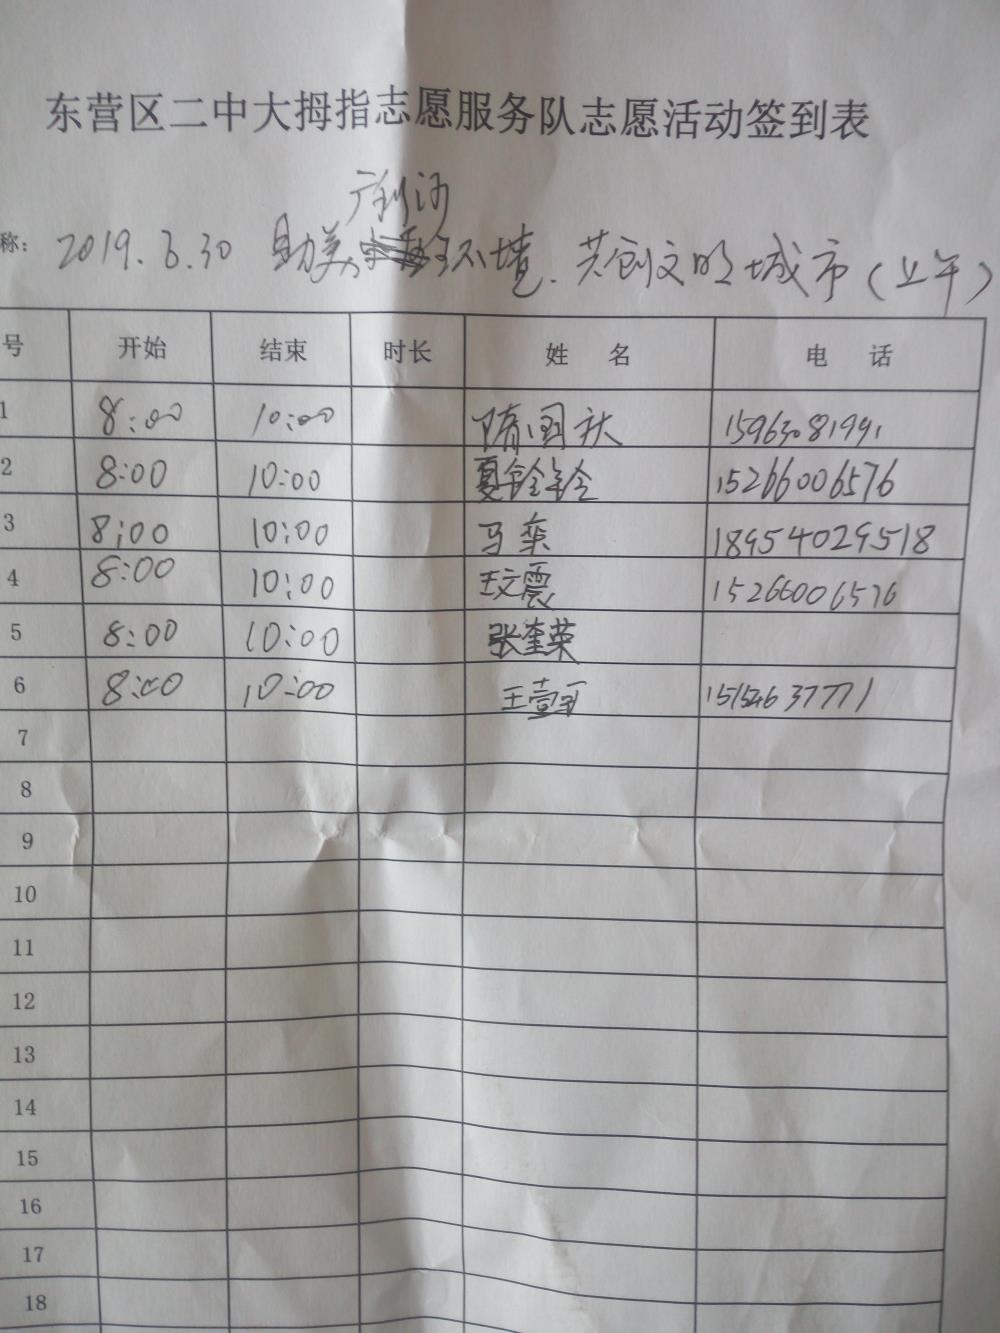 东营区二中大拇指志愿服务队志愿活动签到表
广利河
称: 2019.6.30 助美环境.共创文明城市(上午)
号 开始 结束 时长 姓 名 电 话
1 8:00 10:00 隋国秋 15963081991
2 8:00 10:00 夏铃铃 15266006576
3 8:00 10:00 马栾 18954029518
4 8:00 10:00 王文震 15266006576
5 8:00 10:00 张奎荣
6 8:00 10:00 15154637771
7
8
9
10
11
12
13
14
15
16
17
18